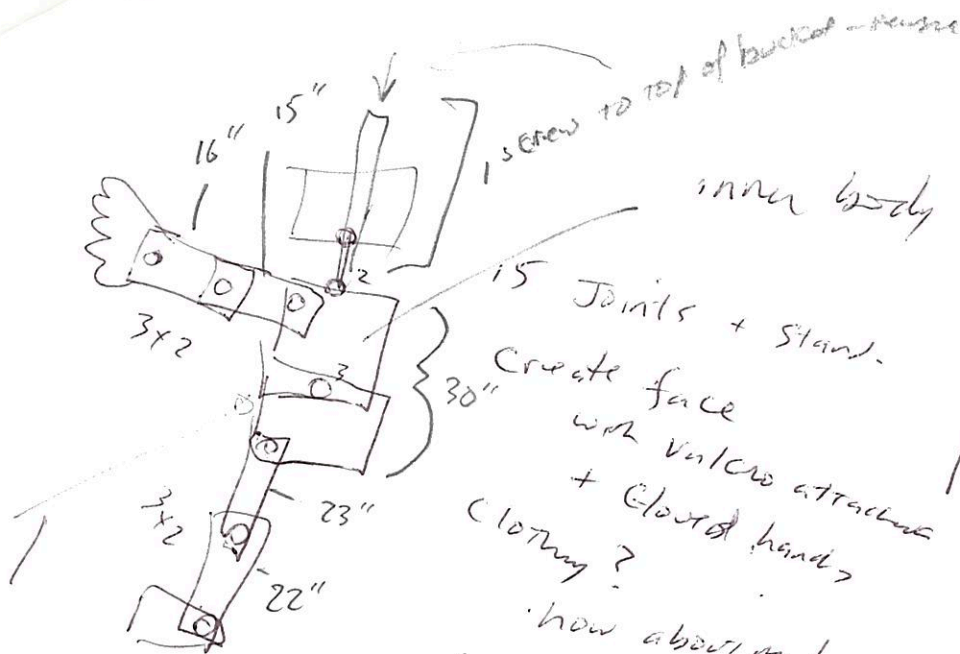 15"
16"
screw to top of bucket -
inner body
2
15 Joints + Stand.
3x2
3
30"
Create face
with Valcro attachm
+ Gloved hands
Clothing?
3x2
23"
22"
how about